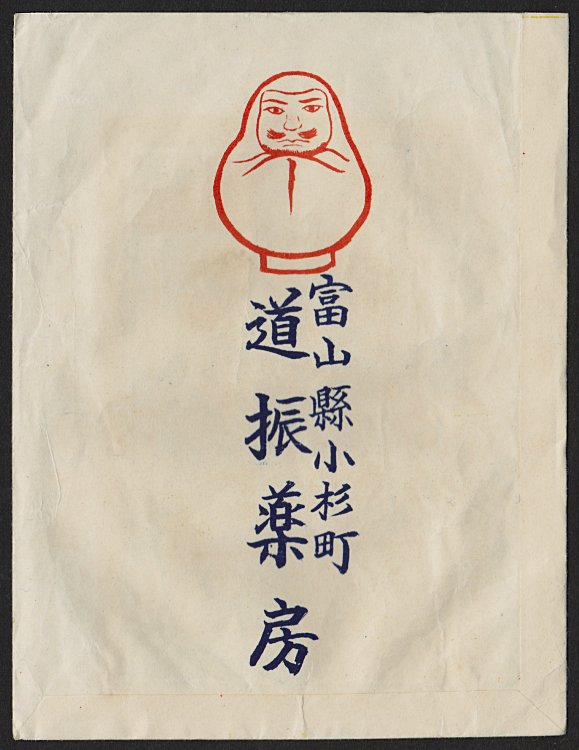 富山縣小杉町
道振薬房